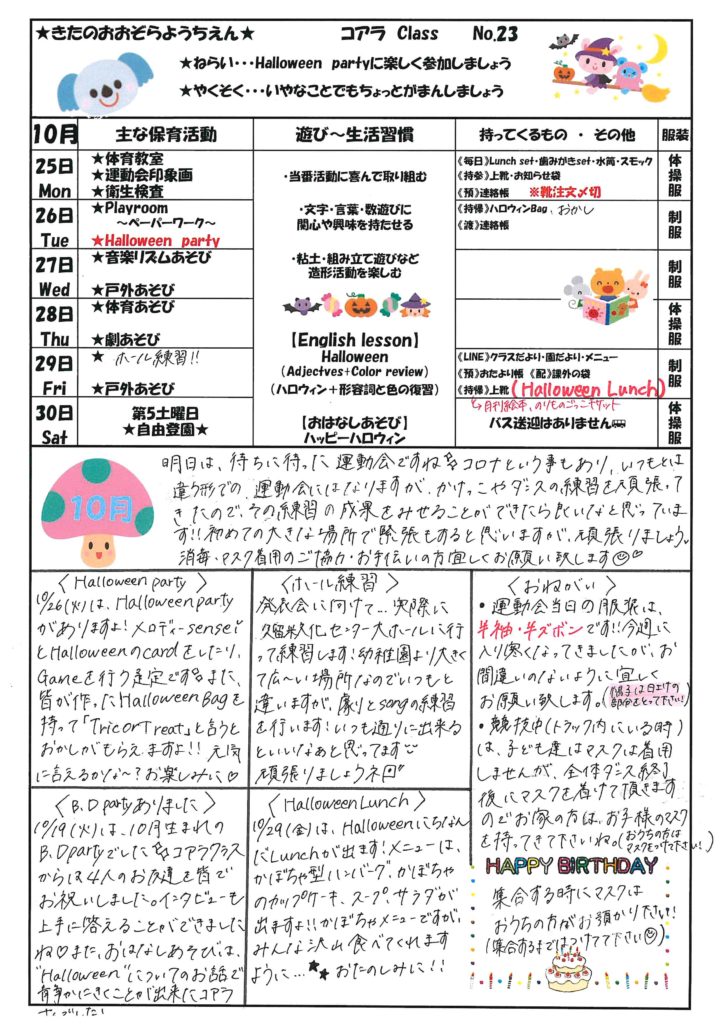 ★きたのおおぞらようちえん★ コアラ Class No.23
★ねらい・・・Halloween partyに楽しく参加しましょう
★やくそく・・・いやなことでもちょっとがまんしましょう
10月 主な保育活動 遊び～生活習慣 持ってくるもの ・ その他 服装
25日 Mon
★体育教室
★運動会印象画
★衛生検査
26日 Tue
★Playroom
～ペーパーワーク～
★Halloween party
27日 Wed
★音楽リズムあそび
★戸外あそび
28日 Thu
★体育あそび
★劇あそび
29日 Fri
★ ホール練習!!
★戸外あそび
30日 Sat
第5土曜日
★自由登園★
・当番活動に喜んで取り組む
・文字・言葉・数遊びに
関心や興味を持たせる
・粘土・組み立て遊びなど
造形活動を楽しむ
【English lesson】
Halloween
(Adjectves+Color review)
(ハロウィン+形容詞と色の復習)
【おはなしあそび】
ハッピーハロウィン
《毎日》Lunch set・歯みがきset・水筒・スモック
《持参》上靴・お知らせ袋
《預》連絡帳 ※靴注文〆切
《持帰》ハロウィンBag、おかし
《渡》連絡帳
《LINE》クラスだより・園だより・メニュー
《預》おたより帳 《配》課外の袋
《持帰》上靴 (Halloween Lunch)
→月刊絵本、のりものごっこチケット
バス送迎はありません
体操服
制服
制服
体操服
制服
体操服
10月
明日は、待ちに待った運動会ですね コロナという事もあり、いつもとは
違う形での、運動会にはなりますが、かけっこやダンスの練習を頑張って
きたので、その練習の成果をみせることができたら良いなと思っていま
す!!初めての大きな場所で緊張もあると思いますが、頑張りましょう。
消毒・マスク着用のご協力・お手伝いの方宜しくお願い致します
〈Halloween party〉
10/26(火)は、Halloween party
がありますよ!メロディーsensei
とHalloweenのcardをしたり、
Gameを行う予定です また、
皆が作ったHalloween Bagを
持って「TricorTreat」と言うと
おかしがもらえますよ!! 元気
に言えるかな～?お楽しみに♡
〈ホール練習〉
発表会に向けて…実際に
久留米文化センター大ホールに行
って練習します!幼稚園より大きく
て広～い場所なのでいつもと
違いますが、劇りとsongの練習
を行います!いつも通りに出来る
といいなぁと思ってます
頑張りましょうネ
〈おねがい〉
・運動会当日の服装は、
半袖・半ズボンです!!今週に
入り寒くなってきましたが、お
間違いのないように宜しく
お願い致します。(帽子は日よけの
部分をとって下さい!)
・競技中(トラック内にいる時)
は、子ども達はマスクは着用
しませんが、全体ダンス終了
後にマスクを着けて頂きます
のでお家の方は、お子様のマスク
を持ってきて下さいね。(おうちの方は
マスクをつけて下さい!)
〈B.D partyありました〉
10/19(火)は、10月生まれの
B.D partyでした コアラクラス
からは4人のお友達を皆で
お祝いしました。インタビューも
上手に答えることができました
ね♡また、おはなしあそびは、
"Halloween"についてのお話で
静かにきくことが出来たコアラ
〈Halloween Lunch〉
10/29(金)は、Halloweenにちなん
だLunchが出ます!メニューは、
かぼちゃ型ハンバーグ、かぼちゃ
のカップケーキ、スープ、サラダが
出ますよ!!かぼちゃメニューですが、
みんな沢山食べてくれます
ように…★★ おたのしみに!!
HAPPY BiRTHDAY
集合する時にマスクは
おうちの方がお預かり下さい!
(集合するまではつけてて下さい)